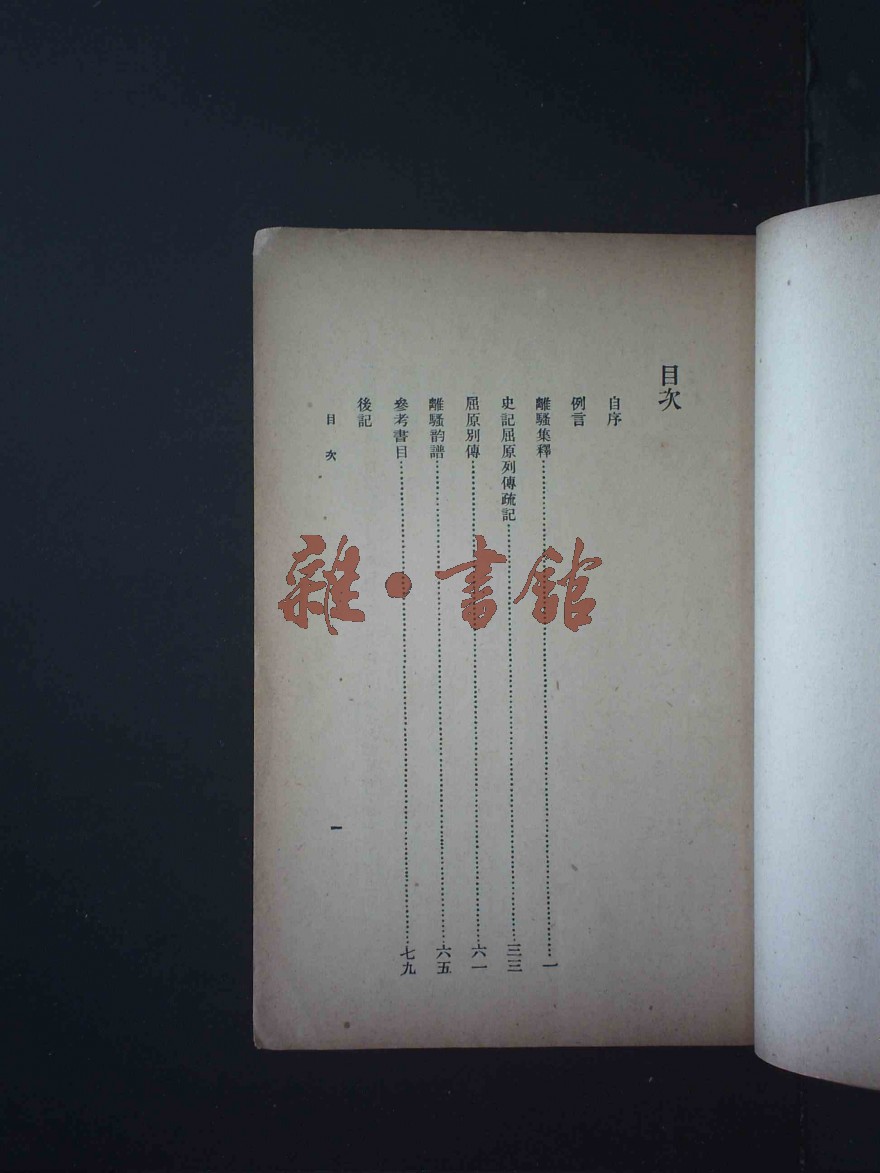 目次
自序
例言
離騷集釋……一
史記屈原列傳疏記……三三
屈原別傳……六一
離騷韵譜……六五
參考書目……七九
後記
目次 一
雜·書館